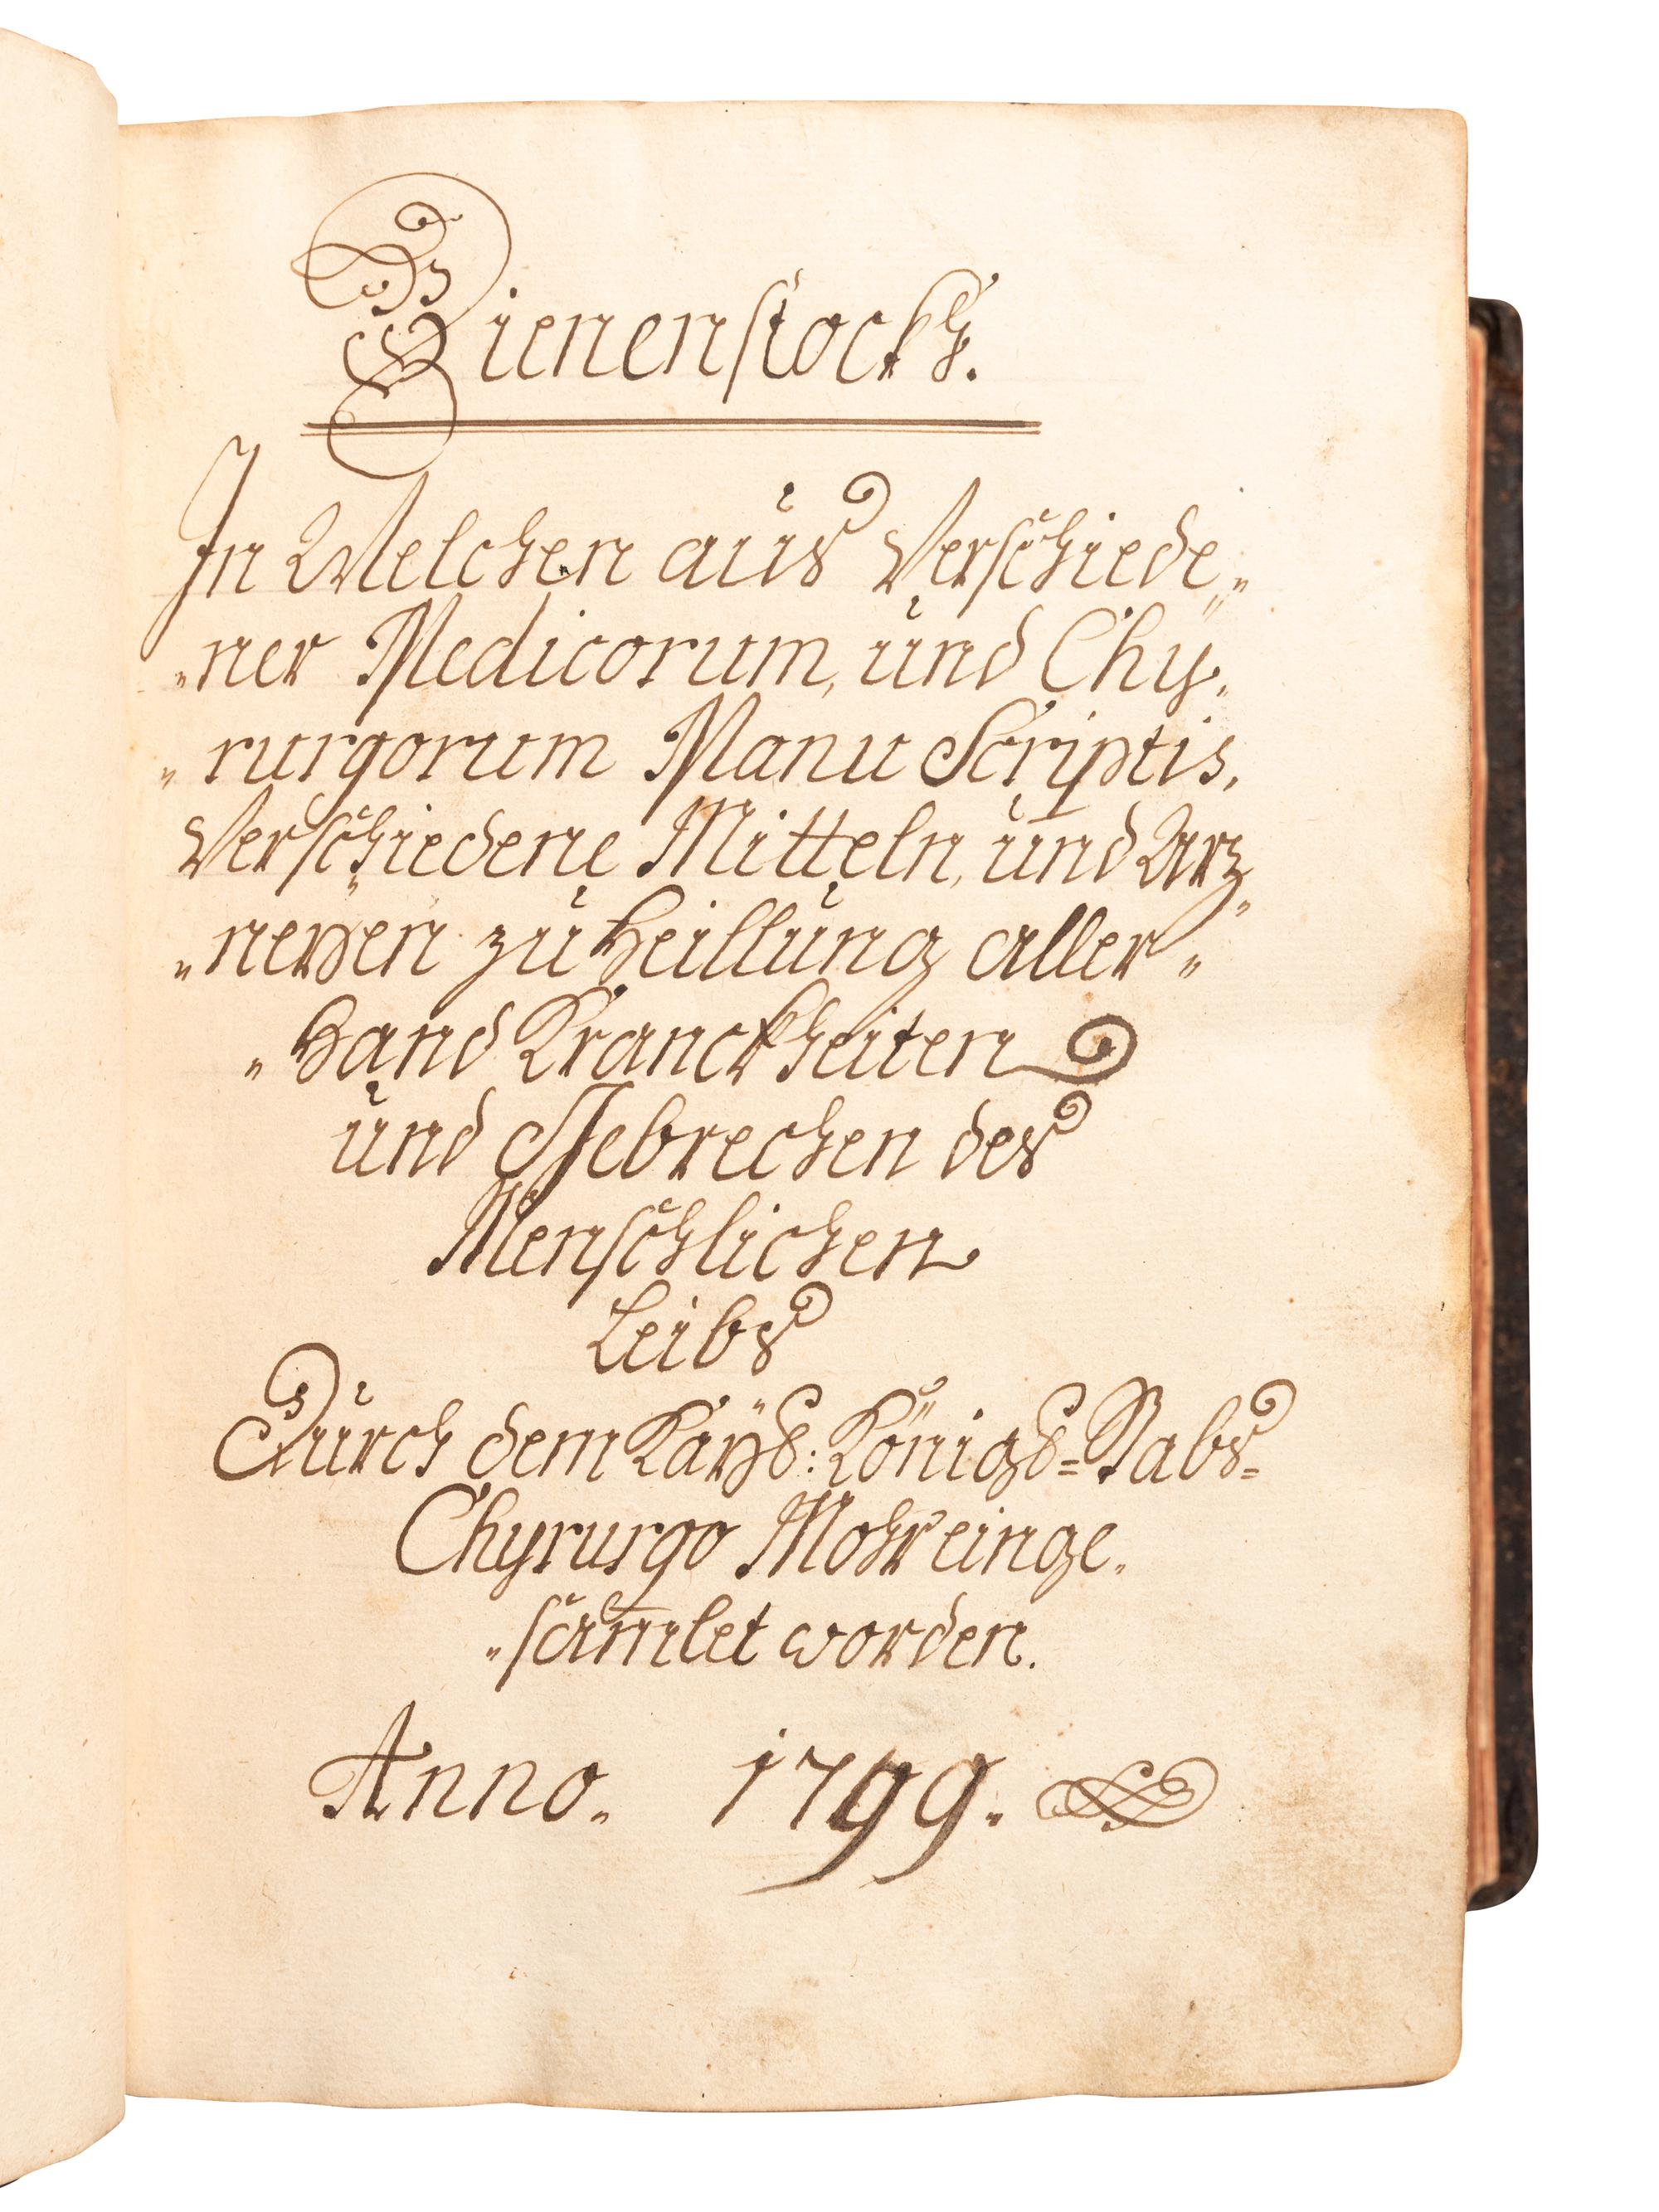 Bienenstockh.
In Welchen aus Verschiede„
„ner Medicorum, und Chy„
„rurgorum Manu Scriptis,
Verschiedene Mitteln, und Arz„
„neyen zu heillung aller„
„hand Kranckheiten
und Gebrechen des
Menschlichen
Leibs
Durch dem Kaÿs: Königs= Stabs=
Chyrurgo Mohr einge„
„samlet worden.
Anno. 1799.